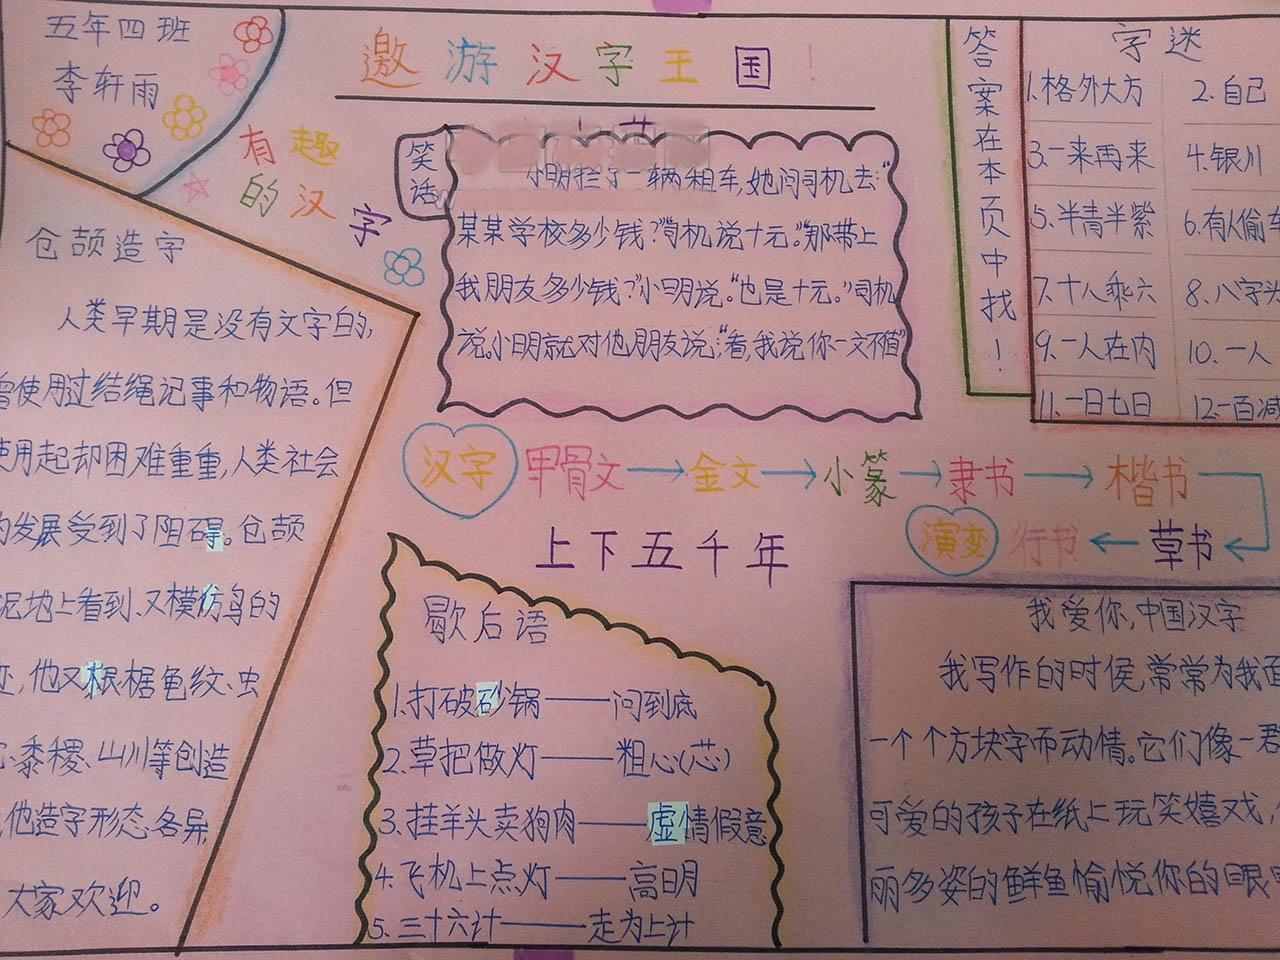 五年四班
李轩雨
邀游汉字王国!
有趣
的汉字
仓颉造字
人类早期是没有文字的,
使用过结绳记事和物语。但
使用起却困难重重,人类社会
的发展受到了阻碍。仓颉
地上看到、又模仿鸟的
他又根据龟纹、虫
黍稷、山川等创造
他造字形态各异
大家欢迎。
笑话
小明拦了一辆租车,她问司机去“
某某学校多少钱?”司机说十元。”那带上
我朋友多少钱?”小明说。“也是十元。”司机
说。小明就对他朋友说:“看,我说你一文不值”
答案在本页中找!
字迷
1.格外大方 2.自己
3.一来再来 4.银川
5.半青半紫 6.有人偷车
7.十人乘六 8.八字头
9.一人在内 10.一人
11.一日七日 12.一百减
汉字 甲骨文→金文→小篆→隶书→楷书
演变 行书←草书
上下五千年
歇后语
1.打破砂锅——问到底
2.草把做灯——粗心(芯)
3.挂羊头卖狗肉——虚情假意
4.飞机上点灯——高明
5.三十六计——走为上计
我爱你,中国汉字
我写作的时侯,常常为我面
一个个方块字而动情。它们像一群
可爱的孩子在纸上玩笑嬉戏,
丽多姿的鲜鱼愉悦你的眼